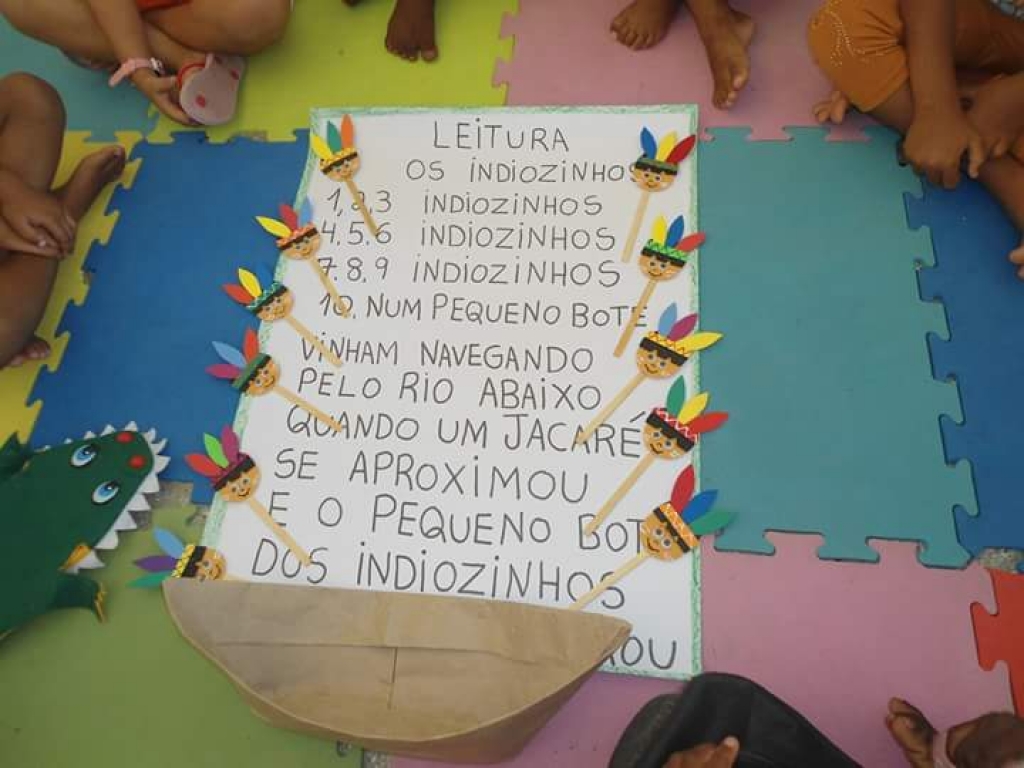 LEITURA
OS INDIOZINHOS
1,2,3 INDIOZINHOS
4.5.6 INDIOZINHOS
7.8.9 INDIOZINHOS
10. NUM PEQUENO BOTE
VINHAM NAVEGANDO
PELO RIO ABAIXO
QUANDO UM JACARÉ
SE APROXIMOU
E O PEQUENO BOT
DOS INDIOZINHOS